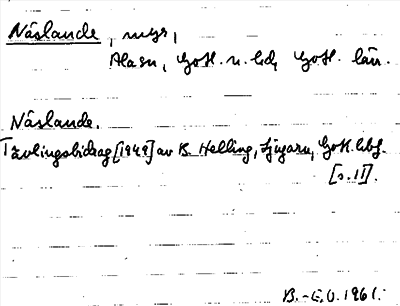 Näslande, myr,
Ala sn, Gotl. n. hd, Gotl. län.
Näslande.
Tävlingsbidrag [1949] av B. Helling, Ljugarn, Gotl.
[s. 11].
B.-E.O. 1961.